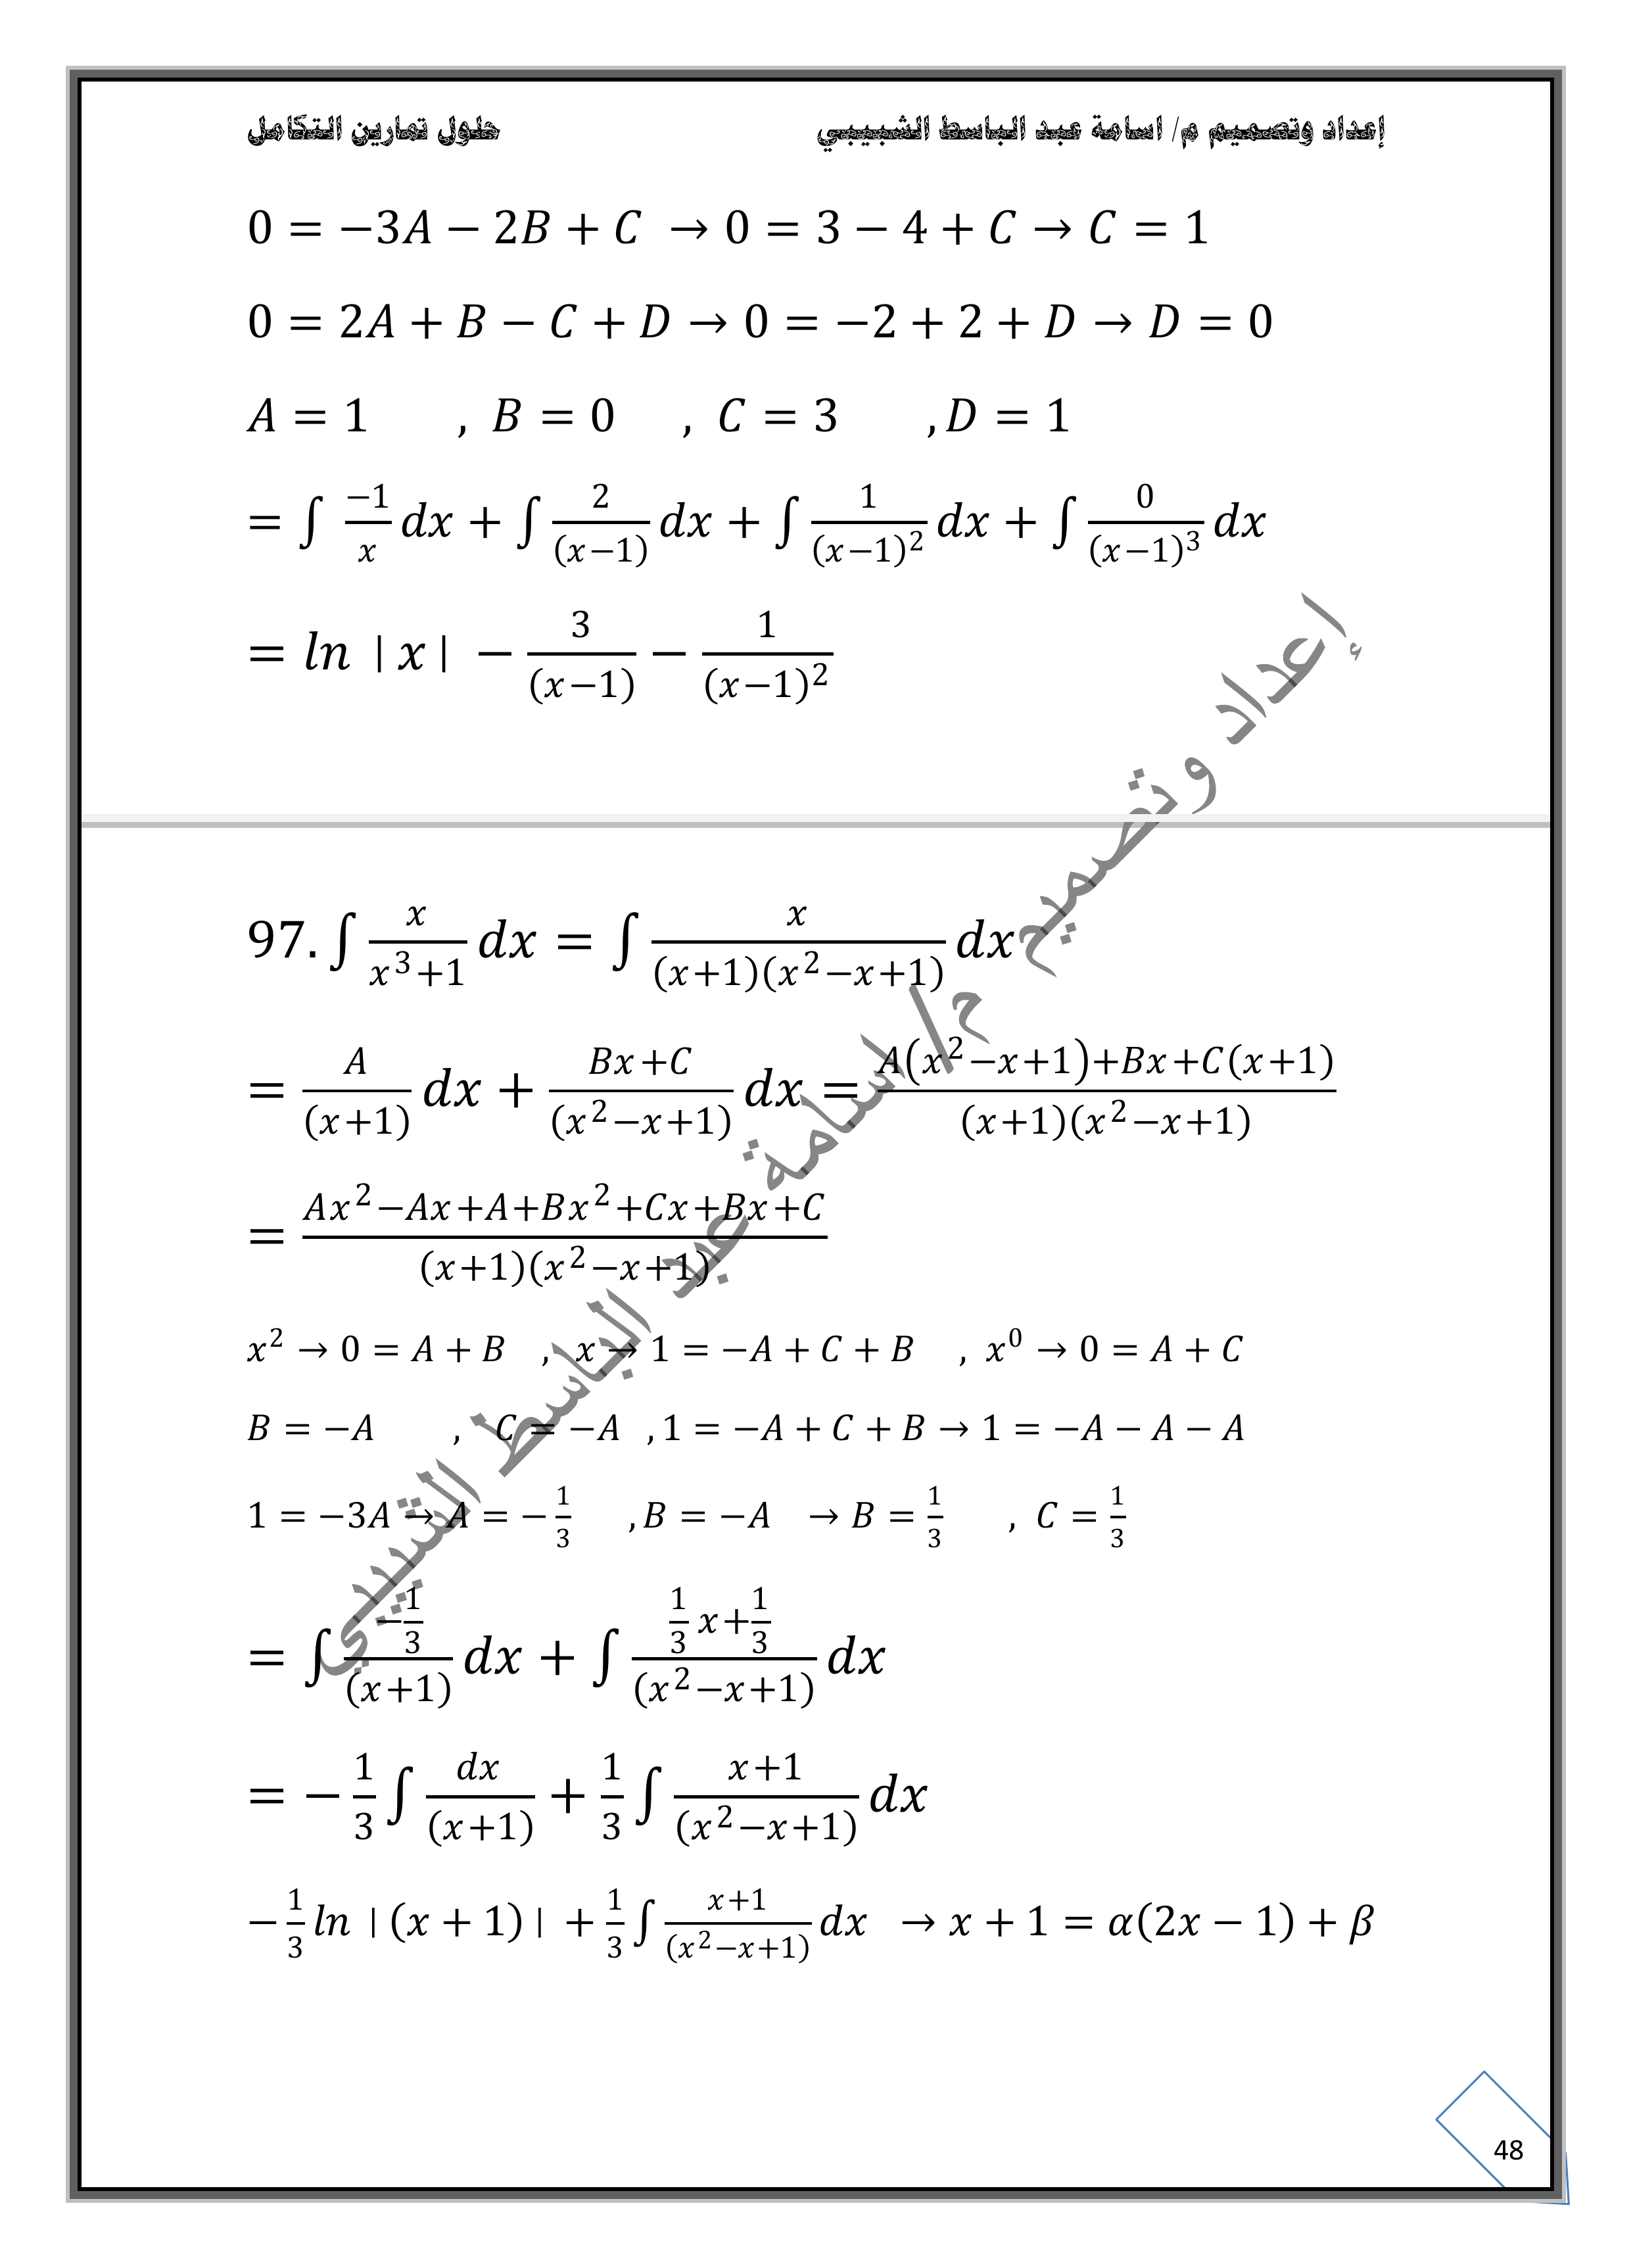 إعداد وتصميم م/ اسامة عبد الباسط الشبيبي حلول تمارين التكامل
0 = −3A − 2B + C → 0 = 3 − 4 + C → C = 1
0 = 2A + B − C + D → 0 = −2 + 2 + D → D = 0
A = 1 , B = 0 , C = 3 , D = 1
= ∫ −1/x dx + ∫ 2/(x−1) dx + ∫ 1/(x−1)² dx + ∫ 0/(x−1)³ dx
= ln |x| − 3/(x−1) − 1/(x−1)²
97. ∫ x/(x³+1) dx = ∫ x/((x+1)(x²−x+1)) dx
= A/(x+1) dx + (Bx+C)/(x²−x+1) dx = (A(x²−x+1)+Bx+C(x+1))/((x+1)(x²−x+1))
= (Ax²−Ax+A+Bx²+Cx+Bx+C)/((x+1)(x²−x+1))
x² → 0 = A + B , x → 1 = −A + C + B , x⁰ → 0 = A + C
B = −A , C = −A , 1 = −A + C + B → 1 = −A − A − A
1 = −3A → A = −1/3 , B = −A → B = 1/3 , C = 1/3
= ∫ (−1/3)/(x+1) dx + ∫ (1/3 x+1/3)/(x²−x+1) dx
= −1/3 ∫ dx/(x+1) + 1/3 ∫ (x+1)/(x²−x+1) dx
−1/3 ln |(x + 1)| + 1/3 ∫ (x+1)/(x²−x+1) dx → x + 1 = α(2x − 1) + β
إعداد وتصميم م/ اسامة عبد الباسط الشبيبي
48